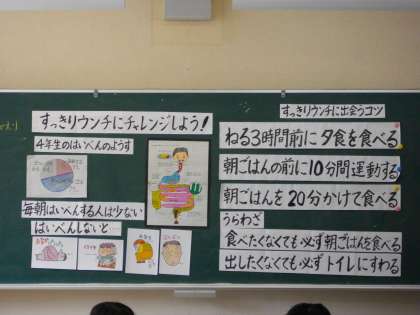 すっきりウンチにチャレンジしよう!
4年生のはいべんのようす
毎朝はいべんする人は少ない
はいべんしないと
すっきりウンチに出会うコツ
ねる3時間前に夕食を食べる
朝ごはんの前に10分間運動する
朝ごはんを20分かけて食べる
うらわざ
食べたくなくても必ず朝ごはんを食べる
出したくなくても必ずトイレにすわる